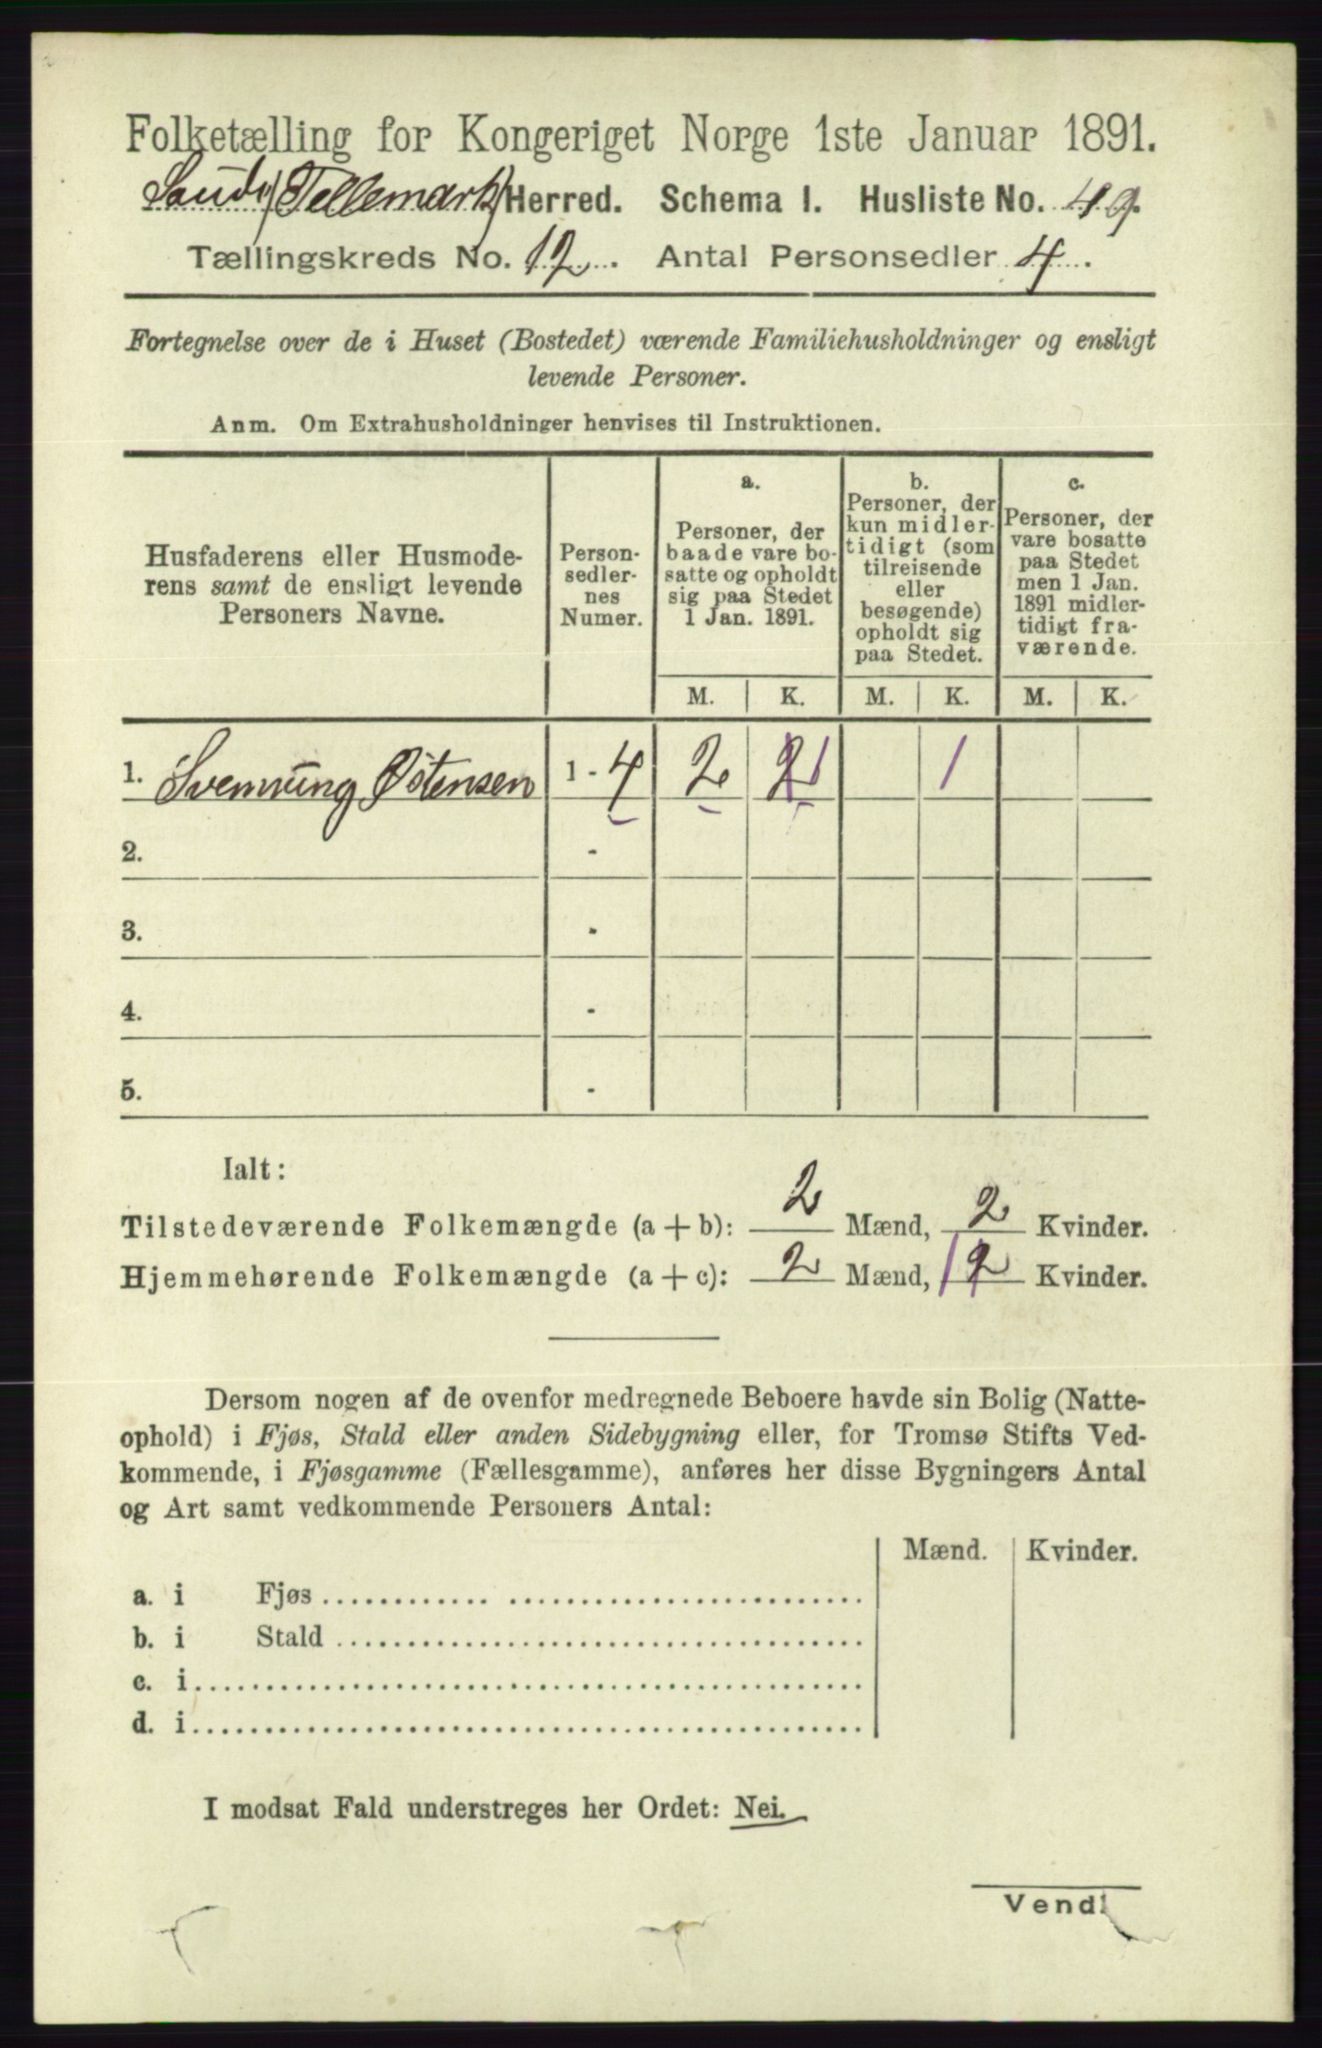 Folketælling for Kongeriget Norge 1ste Januar 1891.
(Tellemark) Herred. Schema I. Husliste No. 49.
Tællingskreds No. 12. Antal Personsedler 4.
Fortegnelse over de i Huset (Bostedet) værende Familiehusholdninger og ensligt
levende Personer.
Anm. Om Extrahusholdninger henvises til Instruktionen.
Husfaderens eller Husmode-
rens samt de ensligt levende
Personers Navne.
Person-
sedler-
nes
Numer.
a.
Personer, der
baade vare bo-
satte og opholdt
sig paa Stedet
1 Jan. 1891.
b.
Personer, der
kun midler-
tidigt (som
tilreisende
eller
besøgende)
opholdt sig
paa Stedet.
c.
Personer, der
vare bosatte
paa Stedet
men 1 Jan.
1891 midler-
tidigt fra-
værende.
M. K. M. K. M. K.
1. Svennung Østensen 1 - 4 2 2 1 1
2. -
3. -
4. -
5. -
Ialt:
Tilstedeværende Folkemængde (a + b): 2 Mænd, 2 Kvinder.
Hjemmehørende Folkemængde (a + c): 2 Mænd, 1 2 Kvinder.
Dersom nogen af de ovenfor medregnede Beboere havde sin Bolig (Natte-
ophold) i Fjøs, Stald eller anden Sidebygning eller, for Tromsø Stifts Ved-
kommende, i Fjøsgamme (Fællesgamme), anføres her disse Bygningers Antal
og Art samt vedkommende Personers Antal:
Mænd. Kvinder.
a. i Fjøs
b. i Stald
c. i
d. i
I modsat Fald understreges her Ordet: Nei.
Vend!